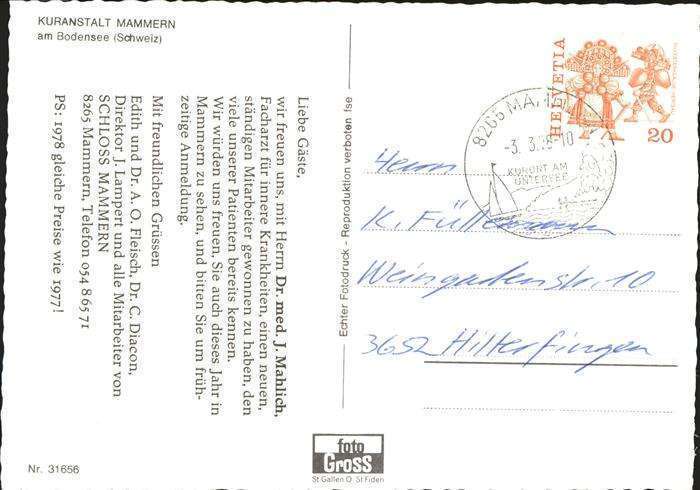 KURANSTALT MAMMERN
am Bodensee (Schweiz)
Liebe Gäste,
wir freuen uns, mit Herrn Dr. med. J. Mahlich,
Facharzt für innere Krankheiten, einen neuen,
ständigen Mitarbeiter gewonnen zu haben, den
viele unserer Patienten bereits kennen.
Wir würden uns freuen, Sie auch dieses Jahr in
Mammern zu sehen, und bitten Sie um früh-
zeitige Anmeldung.
Mit freundlichen Grüssen
Edith und Dr. A. O. Fleisch, Dr. C. Diacon,
Direktor J. Lampert und alle Mitarbeiter von
SCHLOSS MAMMERN
8265 Mammern, Telefon 054 8 65 71
PS: 1978 gleiche Preise wie 1977!
Nr. 31656
Echter Fotodruck - Reproduktion verboten
foto
Gross
St Gallen O St Fiden
HELVETIA
20
8265 MAMM
-3. 3.78-10
KURORT AM
UNTERSEE
Herrn
K. Füllemann
Weingartenstr. 10
3652 Hilterfingen